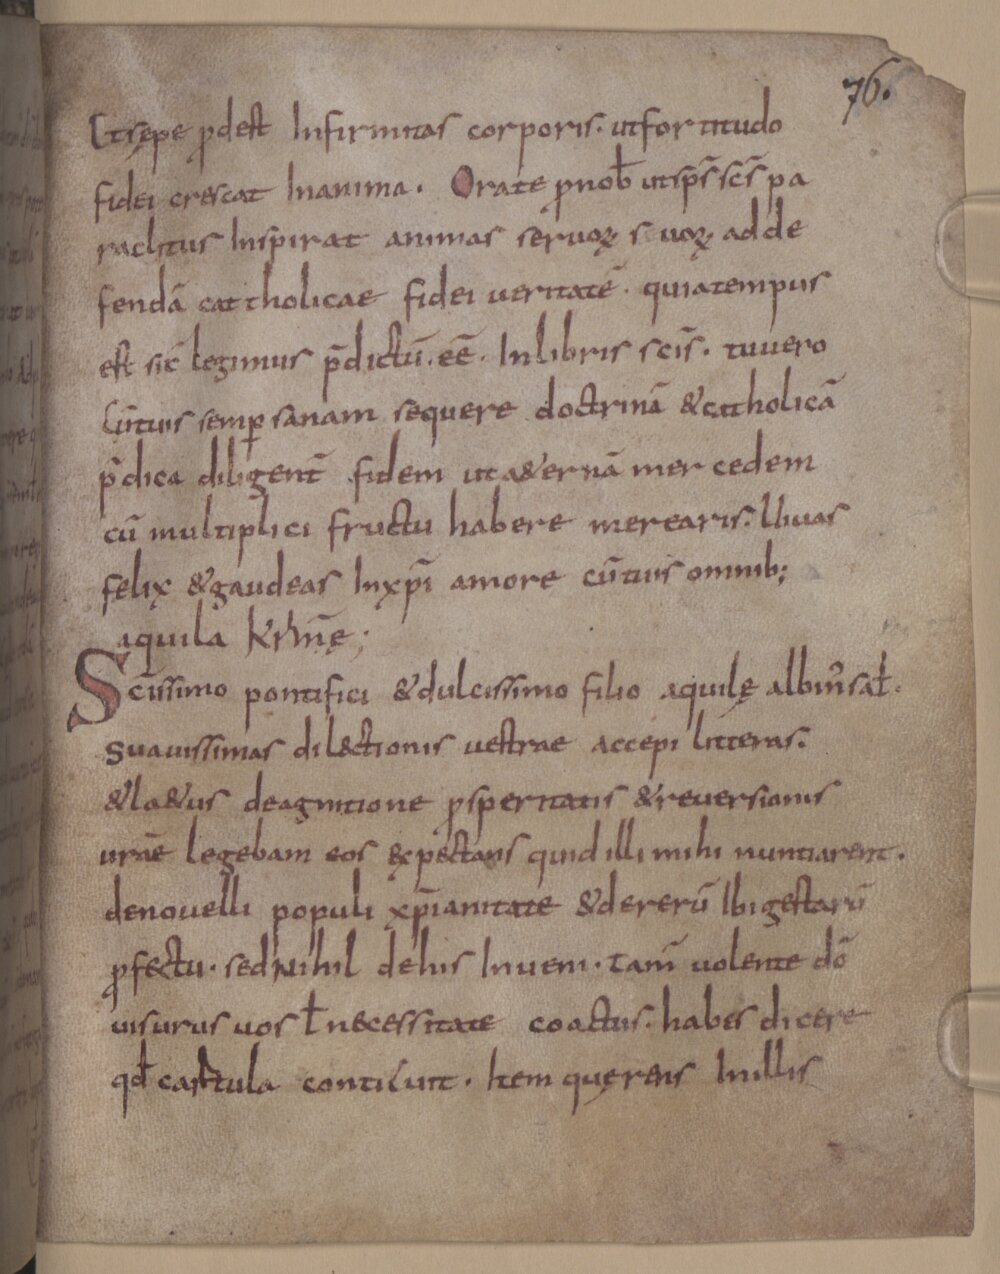 76.
Et sępe ꝓdest Infirmitas corporis· ut fortitudo
fidei crescat In anima· Orate ꝓ nob̄ ut sp̄s sc̄s pa
raclitus Inspirat animas seruoꝝ suoꝝ ad de
fendā cattholicae fidei ueritatē· quia tempus
est sic̄ legimus p̄dictū· eē· In libris sc̄is· tu uero
semp̲ sanam sequere doctrinā & cattholicā
p̄dica diligent̄ fidem ut a&ernā mercedem
cū multiplici fructu habere merearis·
felix & gaudeas In xp̄i amore omnib;
aquila
Sc̄issimo pontifici & dulcissimo filio aquilę albin̄ sał·
suauissimas dil&ctionis uestrae accepi litteras·
& la&us de agnitione ꝓsperitatis & reuersionis
urāe legebam eos expectans quid illi mihi nuntiarent·
de nouelli populi xp̄ianitate & de rerū Ibi gestarū
ꝓfectu· sed nihil de his Inueni· tam̄ uolente dō
uisurus uos ł necessitate coactus· habes dicere
qđ cartula continuit· Item quęrens In illis